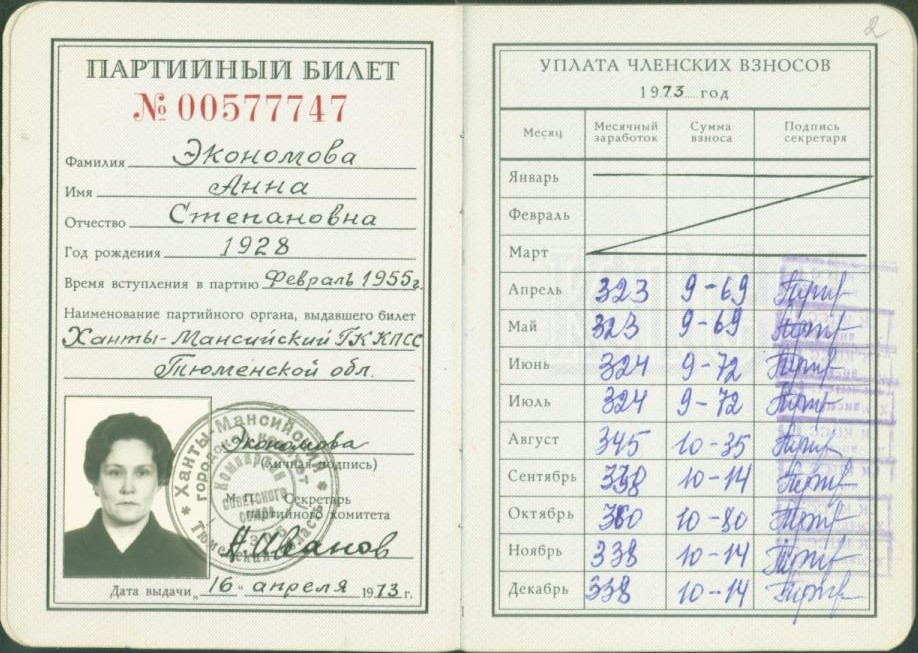 2
ПАРТИЙНЫЙ БИЛЕТ
№ 00577747
Фамилия Экономова
Имя Анна
Отчество Степановна
Год рождения 1928
Время вступления в партию февраль 1955 г.
Наименование партийного органа, выдавшего билет
Ханты-Мансийский ГК КПСС
Тюменской обл.
Экономова
(личная подпись)
М. П. Секретарь
партийного комитета
А Иванов
Дата выдачи „16“ апреля 1973 г.
Ханты-Мансийский
Тюменская область
УПЛАТА ЧЛЕНСКИХ ВЗНОСОВ
1973 год
Месяц Месячный заработок Сумма взноса Подпись секретаря
Январь
Февраль
Март
Апрель 323 9-69
Май 323 9-69
Июнь 324 9-72
Июль 324 9-72
Август 345 10-35
Сентябрь 338 10-14
Октябрь 360 10-80
Ноябрь 338 10-14
Декабрь 338 10-14